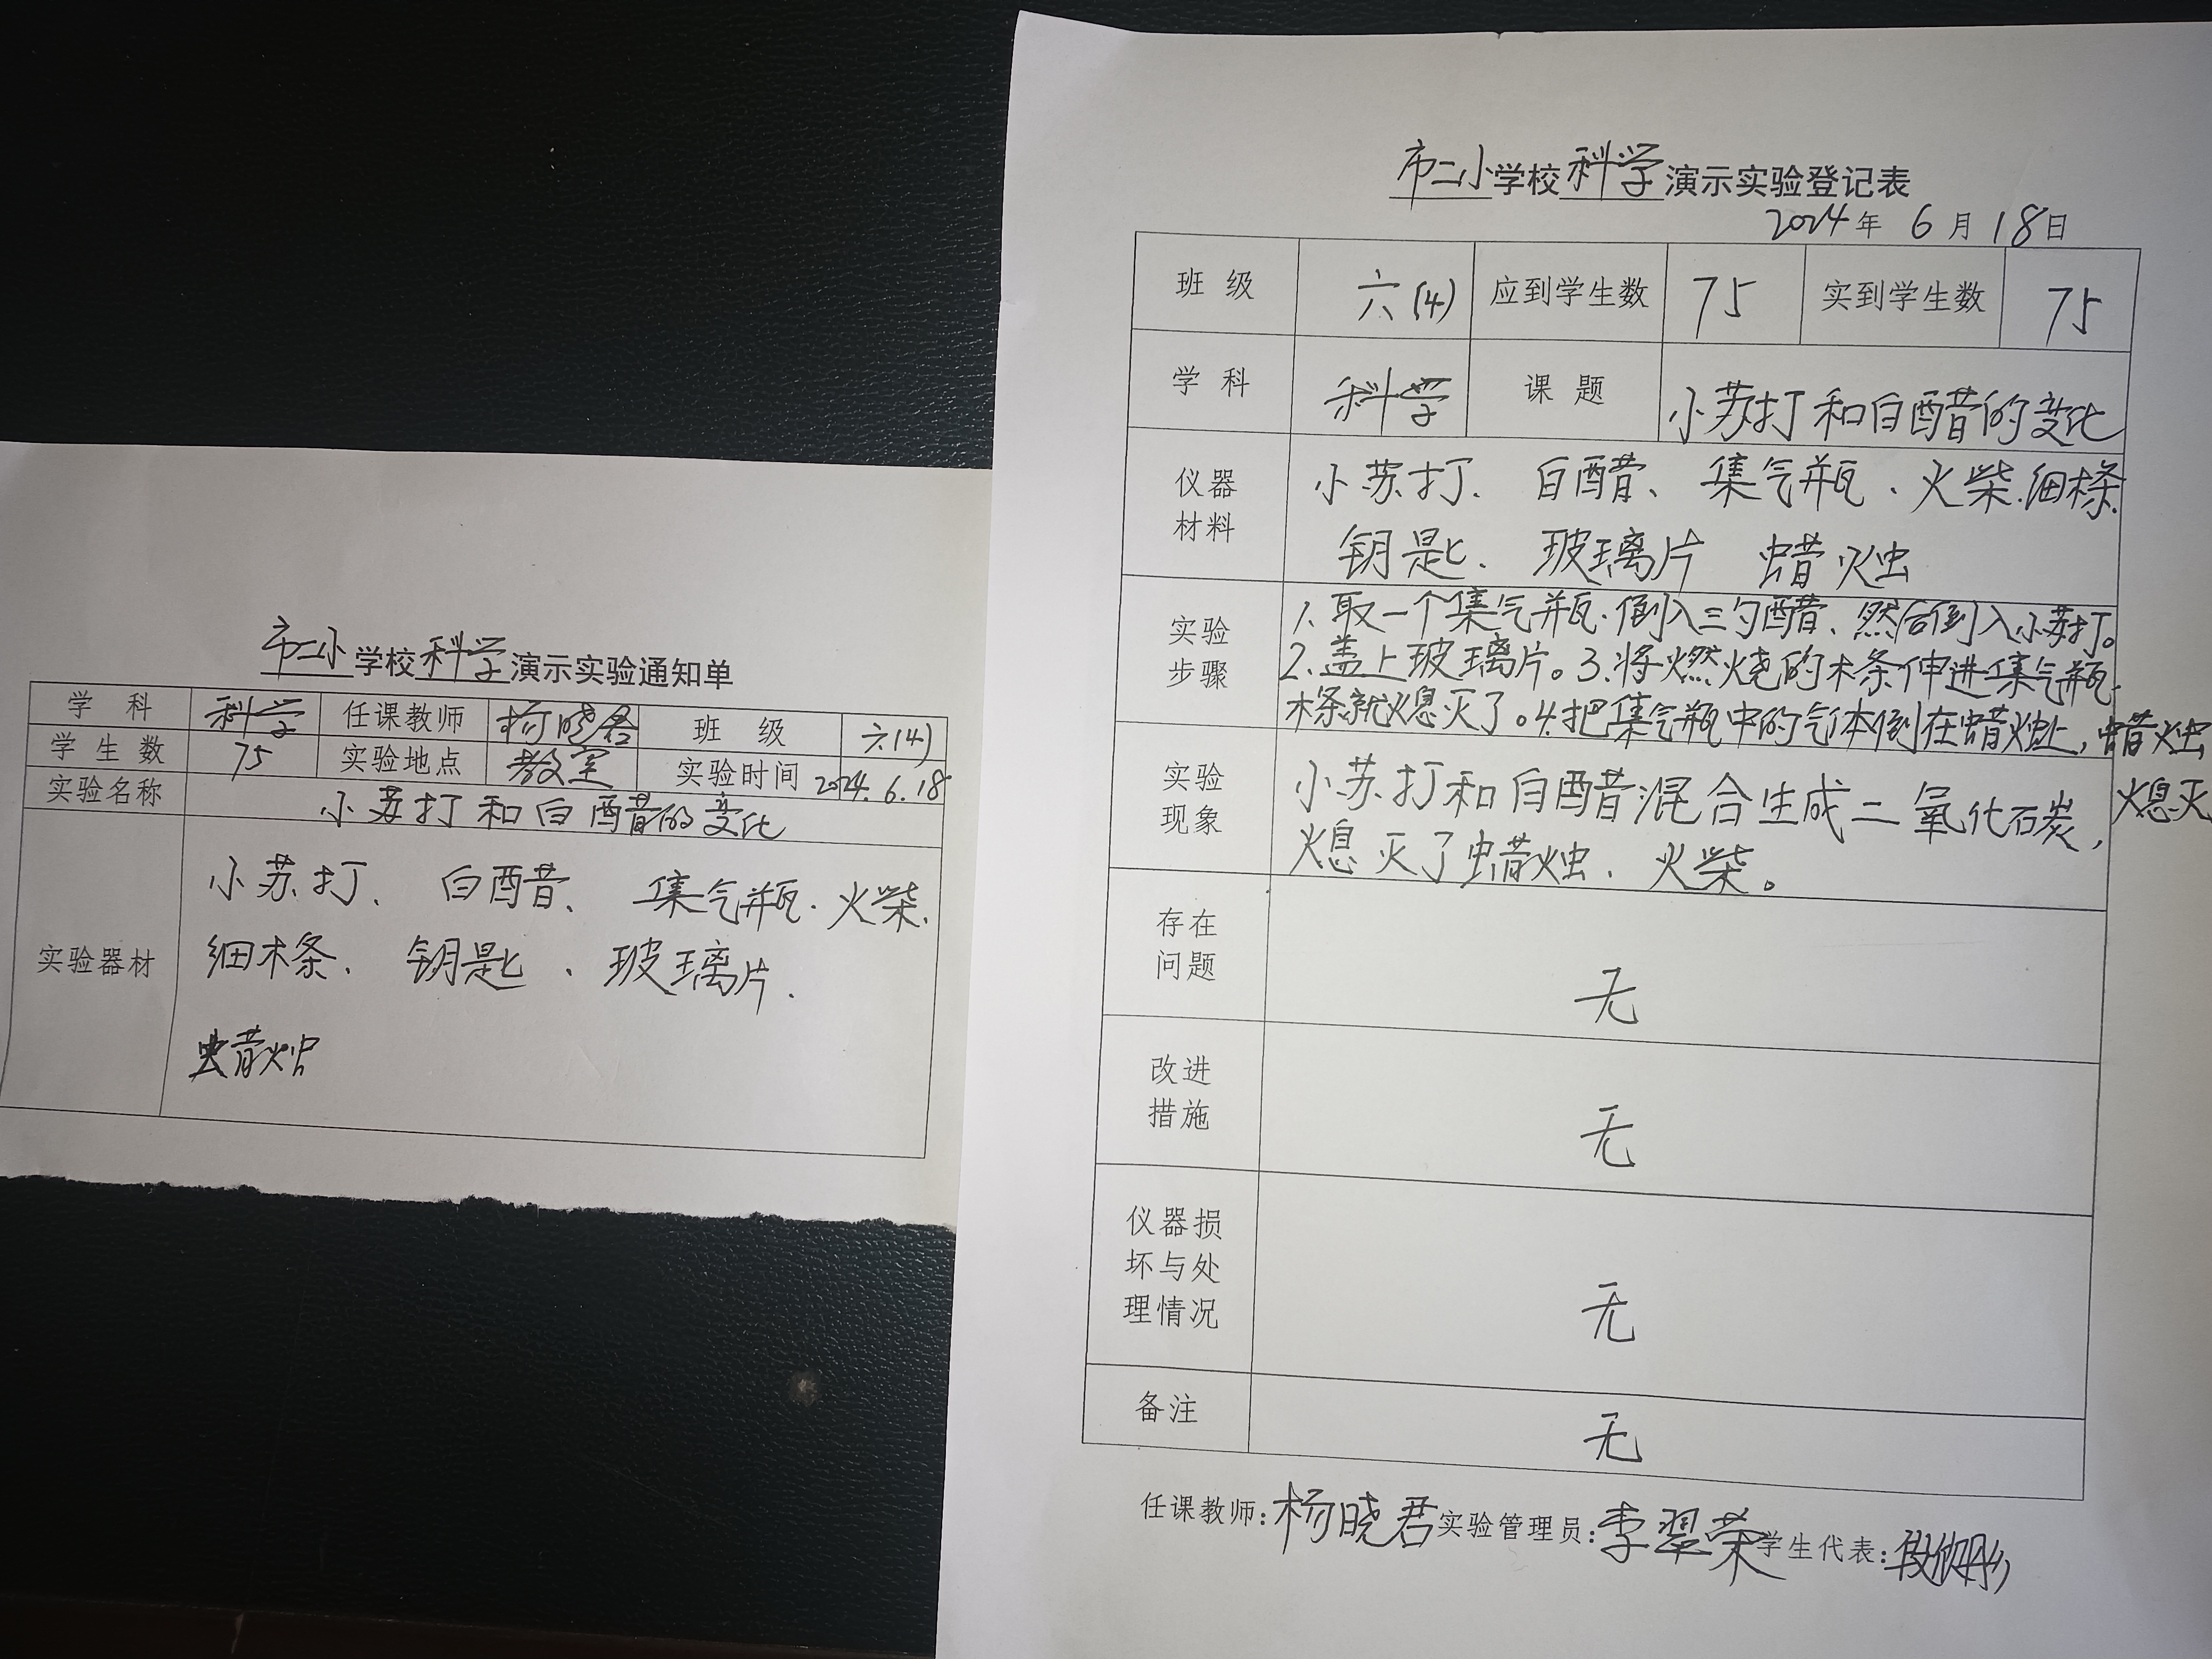 市二小学校科学演示实验通知单
学 科 科学 任课教师 杨晓君 班 级 六(4)
学 生 数 75 实验地点 教室 实验时间 2024.6.18
实验名称 小苏打和白醋的变化
实验器材
小苏打、 白醋、 集气瓶、火柴、
细木条、 钥匙、 玻璃片、
蜡烛
市二小学校科学演示实验登记表
2024年 6月18日
班 级 六(4) 应到学生数 75 实到学生数 75
学 科 科学 课 题 小苏打和白醋的变化
仪器
材料
小苏打、 白醋、 集气瓶、火柴、细木条、
钥匙、 玻璃片 蜡烛
实验
步骤
1、取一个集气瓶、倒入三勺醋、然后倒入小苏打。
2、盖上玻璃片。3、将燃烧的木条伸进集气瓶、
木条就熄灭了。4、把集气瓶中的气体倒在蜡烛上,蜡烛
熄灭
实验
现象
小苏打和白醋混合生成二氧化石炭,
熄灭了蜡烛、火柴。
存在
问题
无
改进
措施
无
仪器损
坏与处
理情况
无
备注
无
任课教师:杨晓君 实验管理员:李翠荣 学生代表: